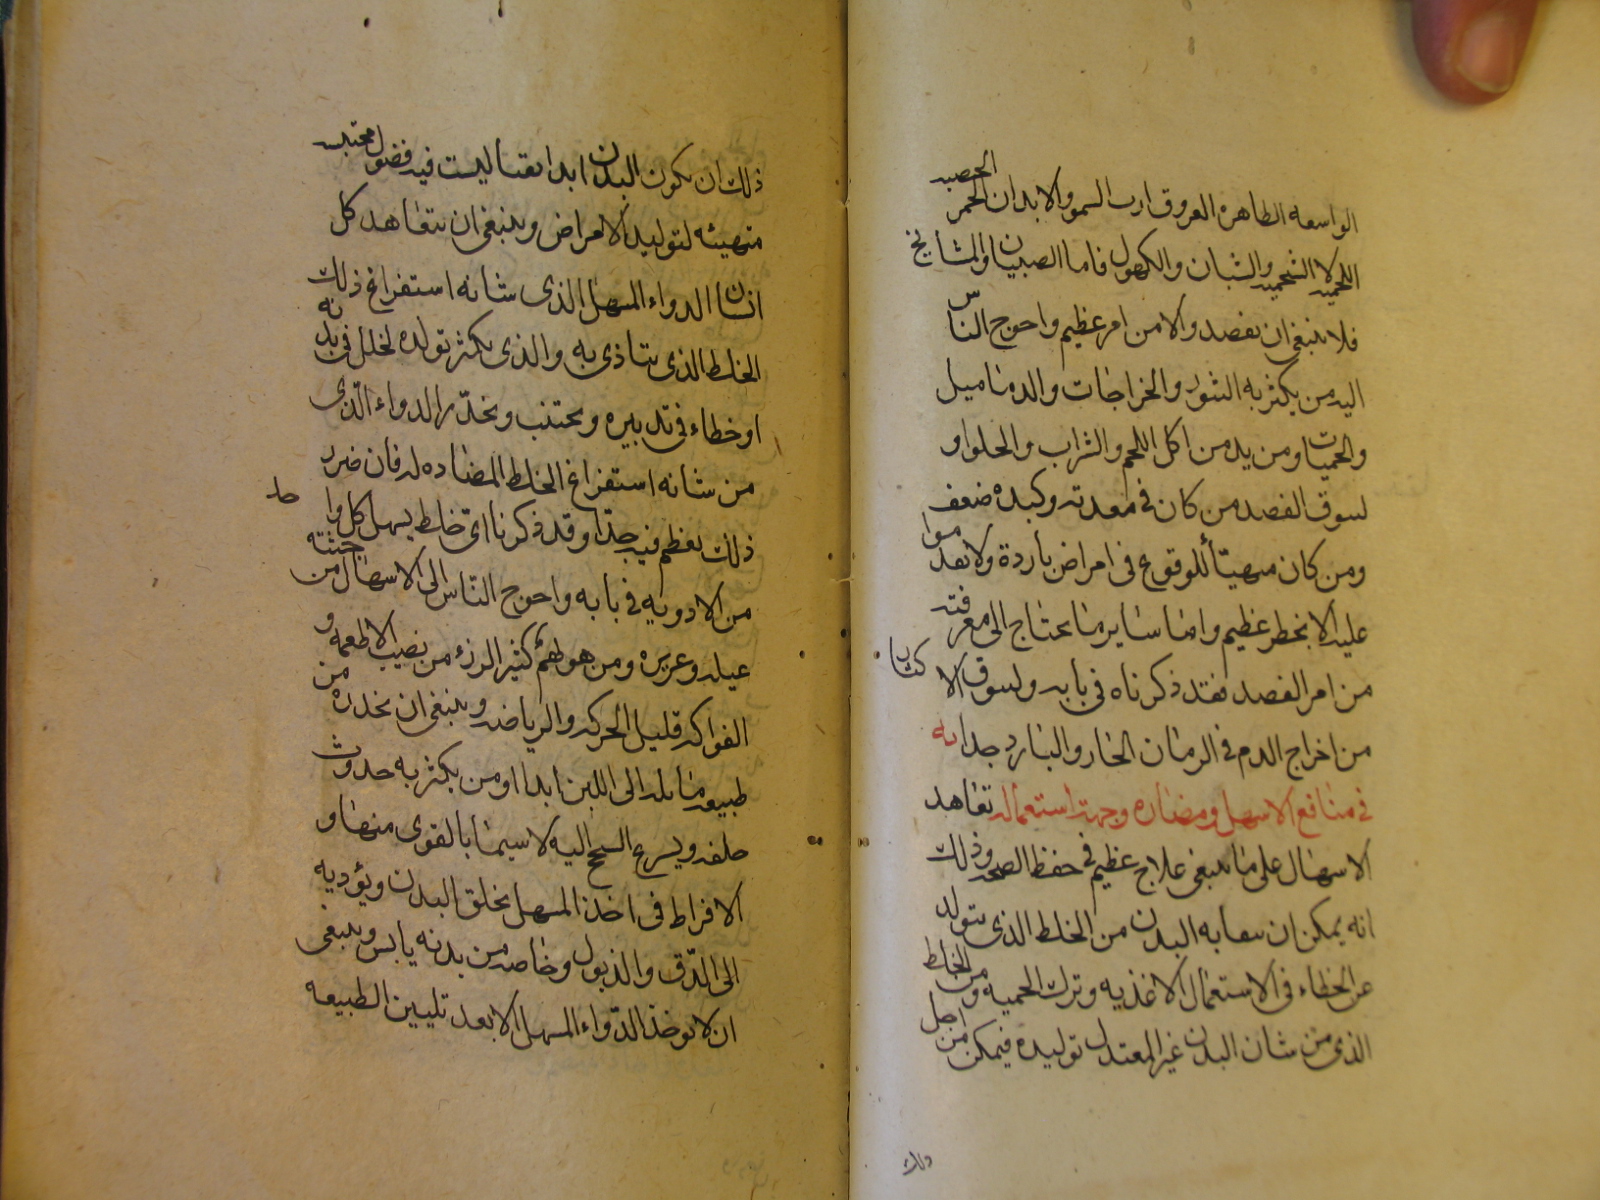 الواسعه الظاهره العروق ارب السمو والابدان الحمر الخصبه
اللحميه لا الشحميه والشبان والكهول فاما الصبيان والمشايخ
فلا ينبغى ان يفصدوا الا من امر عظيم واحوج الناس
اليه من يكثر به البثور والخراجات والدماميل
والحميات ومن يدمن اكل اللحم والشراب والحلوا و
ليتوق الفصد من كان فى معدته وكبده ضعف
ومن كان متهيئأ للوقوع فى امراض باردة ولا يقدموا
عليه الا بخطر عظيم واما ساير ما يحتاج الى معرفته
من امر الفصد فقد ذكرناه فى بابه وليتوق الاكثار
من اخراج الدم فى الزمان الحار والبارد جدا
فى منافع الاسهل ومضاره وجهة استعماله تعاهد
الاسهال على ما ينبغى علاج عظيم فى حفظ الصحه وذلك
انه يمكن ان ينقا به البدن من الخلط الذى يتولد
عن الخطاء فى الاستعمال الاغذيه وترك الحميه ومن الخلط
الذى من شان البدن غير المعتدل توليده فيمكن من اجل
ذلك
ذلك ان يكون البدن ابدا نقيا ليست فيه فضول محتبسه
متهيئه لتوليد الامراض وينبغى ان يتعاهد كل
انسان الدواء المسهل الذى شانه استفراغ ذلك
الخلط الذى يتاذى به والذى يكثر تولده لخلل فى بدنه
او خطاء فى تدبيره ويجتنب ويحذر الدواء الذى
من شانه استفراغ الخلط المضاده له فان ضرر
ذلك يعظم فيه جدا وقد ذكرنا اى خلط يسهل كل واحد
من الادويه فى بابه واحوج الناس الى الاسهال من جثته
عبله وغزيره ومن هو نهم كثير الرزء من نصيب الاطعمه و
الفواكه قليل الحركه والرياضه وينبغى ان يحذره من
طبيعه مائله الى اللين ابدا او من يكثر به حدوث
خلفه ويسرع السحج اليه لا سيما بالقوى منها و
الافراط فى اخذ المسهل يخلق البدن ويؤديه
الى الدق والذبول وخاصه من بدنه يابس وينبغى
ان لا يوخذ الدواء المسهل الا بعد تليين الطبيعه